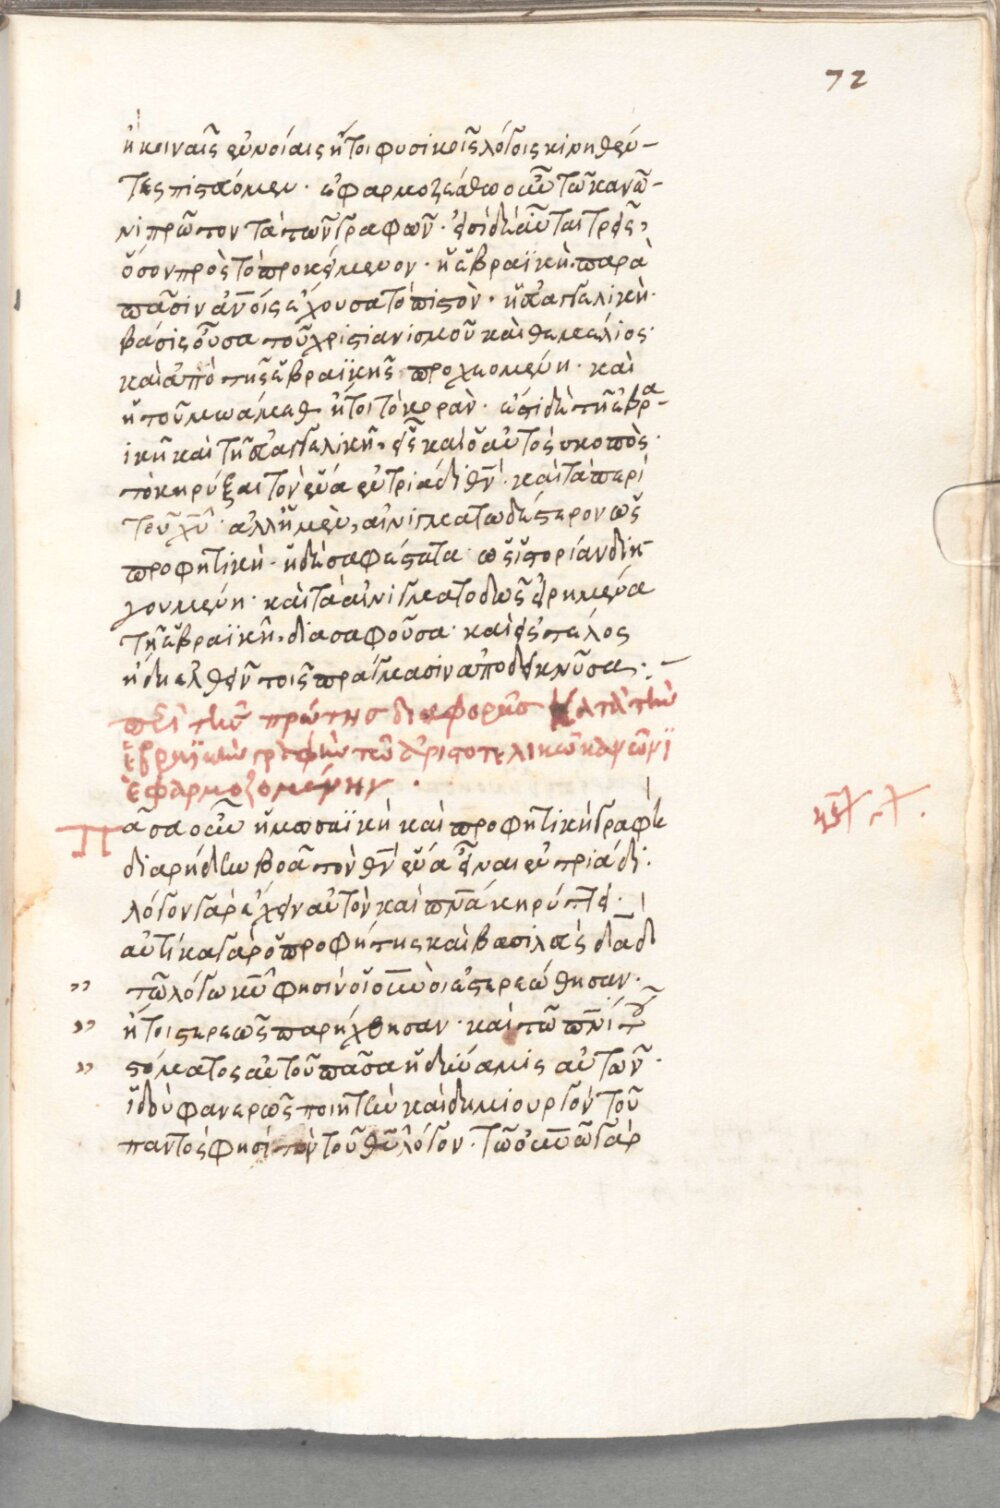 72
ἢ κοιναῖς ἐννοίαις ἤτοι φυσικοῖς λόγοις κινηθέν-
τες πιστεύομεν · ἐφαρμοζέσθω οὖν τῶ κανό-
νι πρῶτον τὰ τῶν γραφῶν · εἰσὶ δὲ αὗται τρεῖς,
ὅσον πρὸς τὸ προκείμενον · ἡ ἑβραϊκὴ παρὰ
πᾶσιν ἀνοῖς ἔχουσα τὸ πιστὸν · ἡ εὐαγγελικὴ
βάσις οὖσα τοῦ χριστιανισμοῦ καὶ θεμέλιος ·
καὶ ἀπὸ τῆς ἑβραϊκῆς προχεομένη · καὶ
ἡ τοῦ μωάμεθ ἤτοι τὸ κορὰν · ἐπεὶ δὲ τῆ ἑβρα-
ικῆ καὶ τῆ εὐαγγελικῆ, εἷς καὶ ὁ αὐτὸς σκοπὸς ·
τὸ κηρύξαι τὸν ἕνα ἐν τριάδι θν̄ · καὶ τὰ περὶ
τοῦ χῡ · ἀλλ' ἡ μὲν, αἰνιγματωδέστερον ὡς
προφητικὴ · ἡ δὲ σαφέστατα ὡς ἱστορίαν διη-
γουμένη · καὶ τὰ αἰνιγματοδῶς εἰρημένα
τῆ ἑβραϊκῆ, διασαφοῦσα · καὶ εἰς τέλος
ἤδη ἐλθεῖν τοῖς πράγμασιν ἀποδεικνῦσα :-
περὶ τῆς πρώτης διαφορᾶς κατὰ τὴν
ἑβραϊκὴν γραφὴν τῶ ἀριστοτελικῶ κανώνι
ἐφαρμοζομένην ·
Πᾶσα οὖν ἡ μωσαϊκὴ καὶ προφητικὴ γραφὴ
διαρήδην βοᾶ τὸν θν̄ ἕνα εἶναι ἐν τριάδι ·
λόγον γὰρ ἔχειν αὐτὸν καὶ πνᾱ κηρύττει ·
αὐτίκα γὰρ ὁ προφήτης καὶ βασιλεὺς δᾱδ
" τῶ λόγω κῡ φησὶν οἱ οὐνοὶ ἐστερεώθησαν ·
" ἤτοι στερεῶς παρήχθησαν · καὶ τῶ πνῑ τοῦ
" στόματος αὐτοῦ πᾶσα ἡ δύναμις αὐτῶν ·
ἰδοὺ φανερῶς ποιητὴν καὶ δημιουργὸν τοῦ
παντός φησὶ τὸν τοῦ θῡ λόγον · τῶ οὐνῶ γὰρ